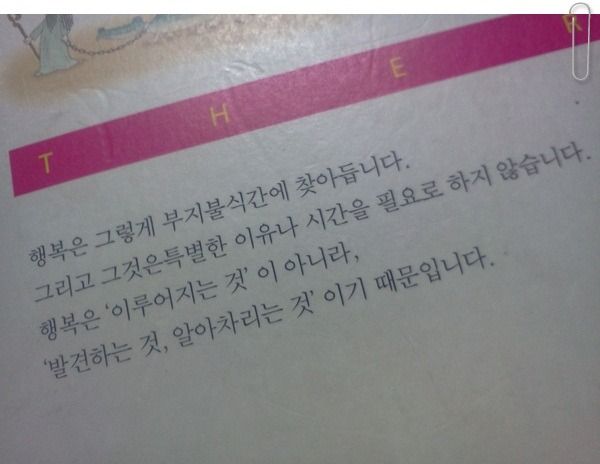 T H E R
행복은 그렇게 부지불식간에 찾아듭니다.
그리고 그것은특별한 이유나 시간을 필요로 하지 않습니다.
행복은 ‘이루어지는 것’ 이 아니라,
‘발견하는 것, 알아차리는 것’ 이기 때문입니다.